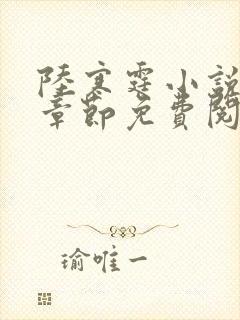 陸寒霆小說
章節免費閱
瑜唯一